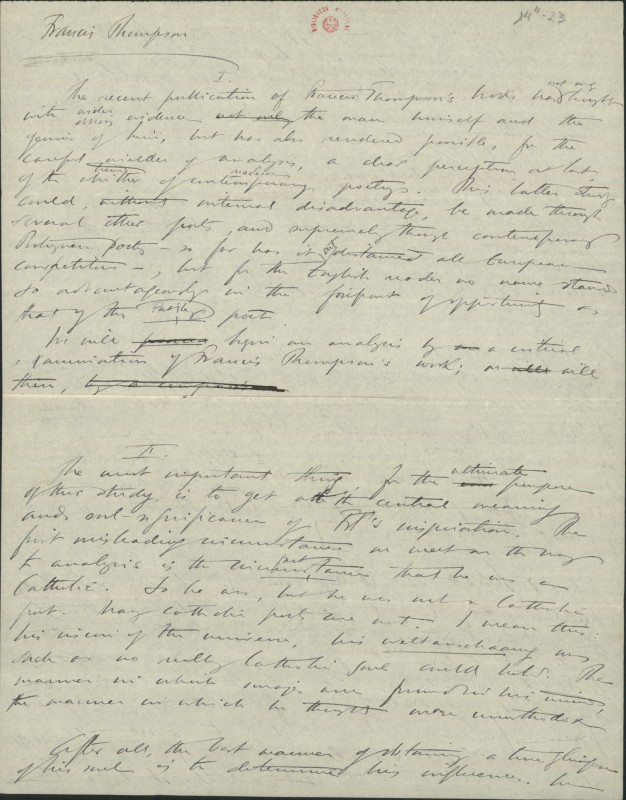 14⁴-23
Francis Thompson
I.
The recent publication of Francis Thompson's works has not only brought
with wider evidence not only the man himself and the
genius of him, but has also rendered possible, for the
careful wielder of analysis, a clear perception at last,
of the whither of contemporary poetry. This latter study
could, without external disadvantage, be made through
several other poets, and supremely through contemporary
Portuguese poets — so far has it all European
competitors —, but for the English reader no name stands
so advantageously in the forefront of opportunity as
that of the poet.
We will begin our analysis by a critical
examination of Francis Thompson's work; we will
then,
II.
The most important thing, for the ultimate purpose
of this study, is to get at the central meaning
and soul-significance of FT's inspiration. The
first misleading circumstance we meet on the way
to analysis is the circumstance that he was a
Catholic. So he was, but he was not a Catholic
poet. Many catholic poets are not. I mean this:
his vision of the universe, his weltanschauung was
such as no really Catholic soul could hold. The
manner in which images are found in his mind,
the manner in which he thought were unorthodox
After all, the best manner of obtaining a true glimpse
of his soul is to determine his influences.